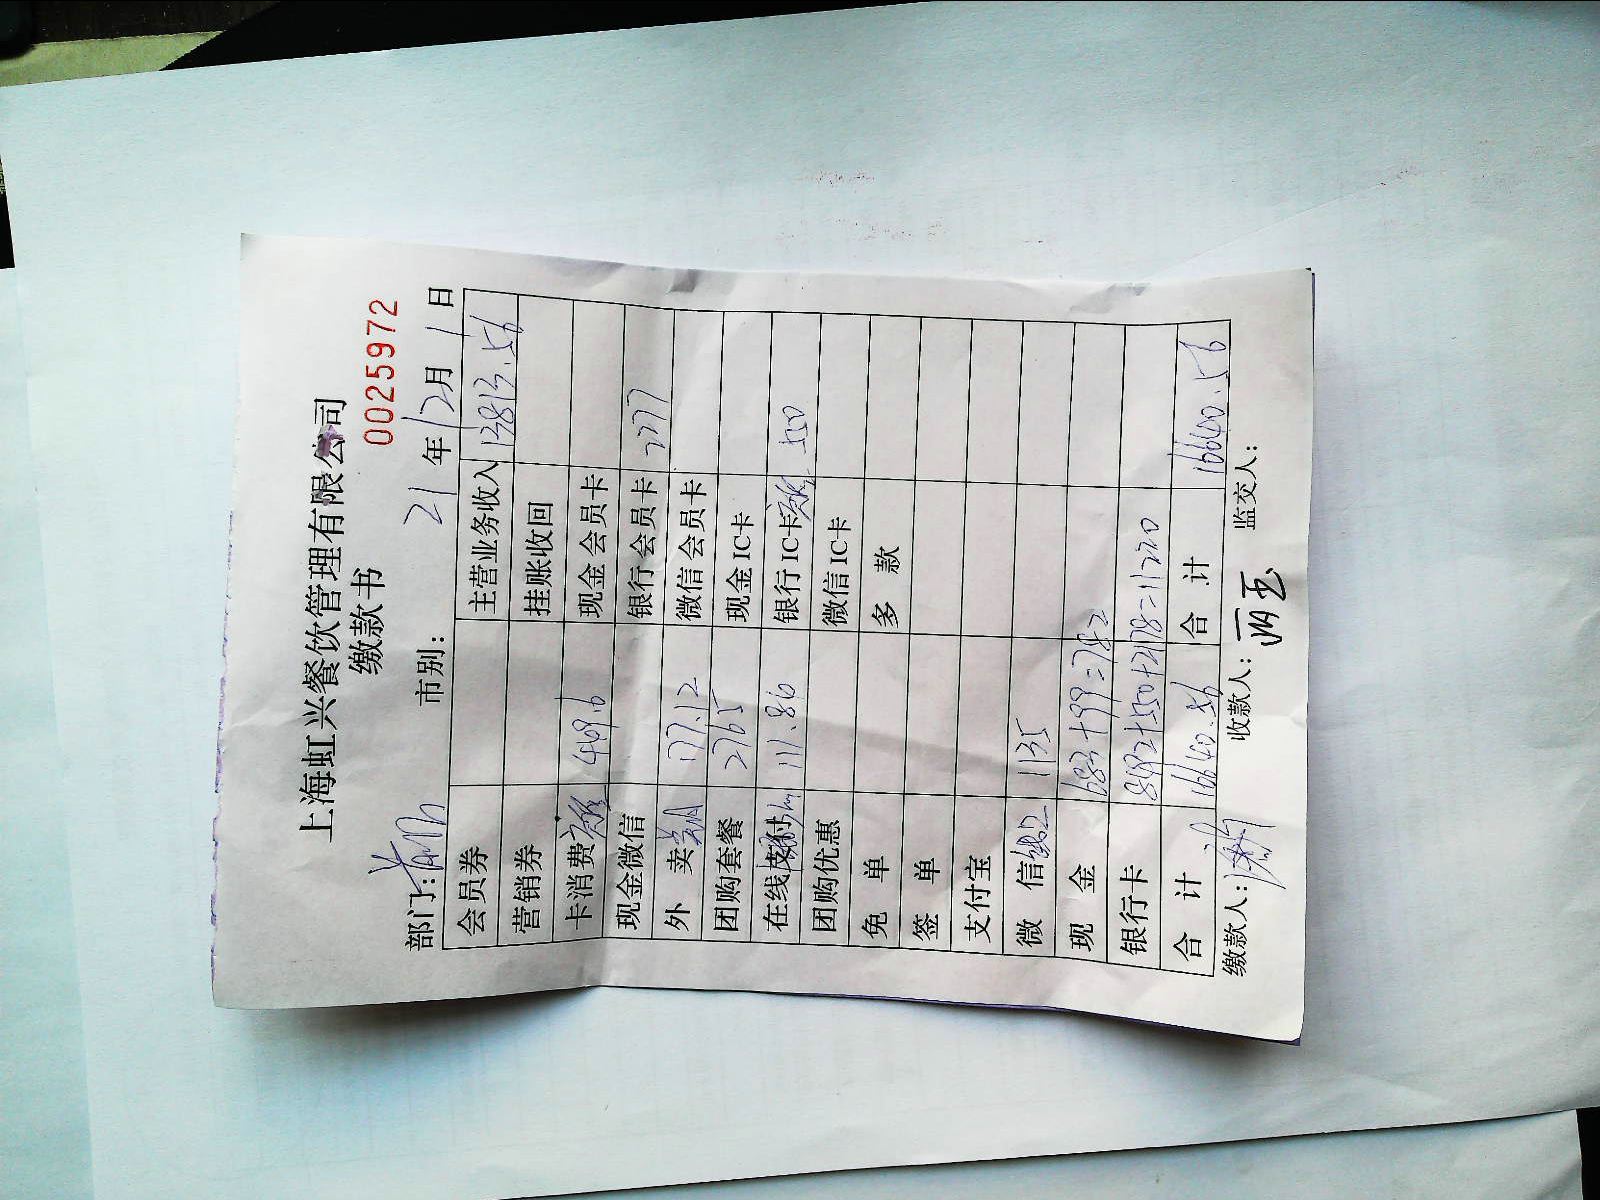 上海虹兴餐饮管理有限公司
缴款书
0025972
部门: 市别: 21年12月1日
会员券 主营业务收入 13813.56
营销券 挂账收回
卡消费 449.6 现金会员卡
现金微信 银行会员卡 2277
外卖 177.12 微信会员卡
团购套餐 2765 现金IC卡
在线支付 111.84 银行IC卡 550
团购优惠 微信IC卡
免单 多款
签单
支付宝
微信 1135
现金 683+99=782
银行卡 8492+550+2178=11220
合计 16640.56 合计 16640.56
缴款人: 收款人: 监交人: